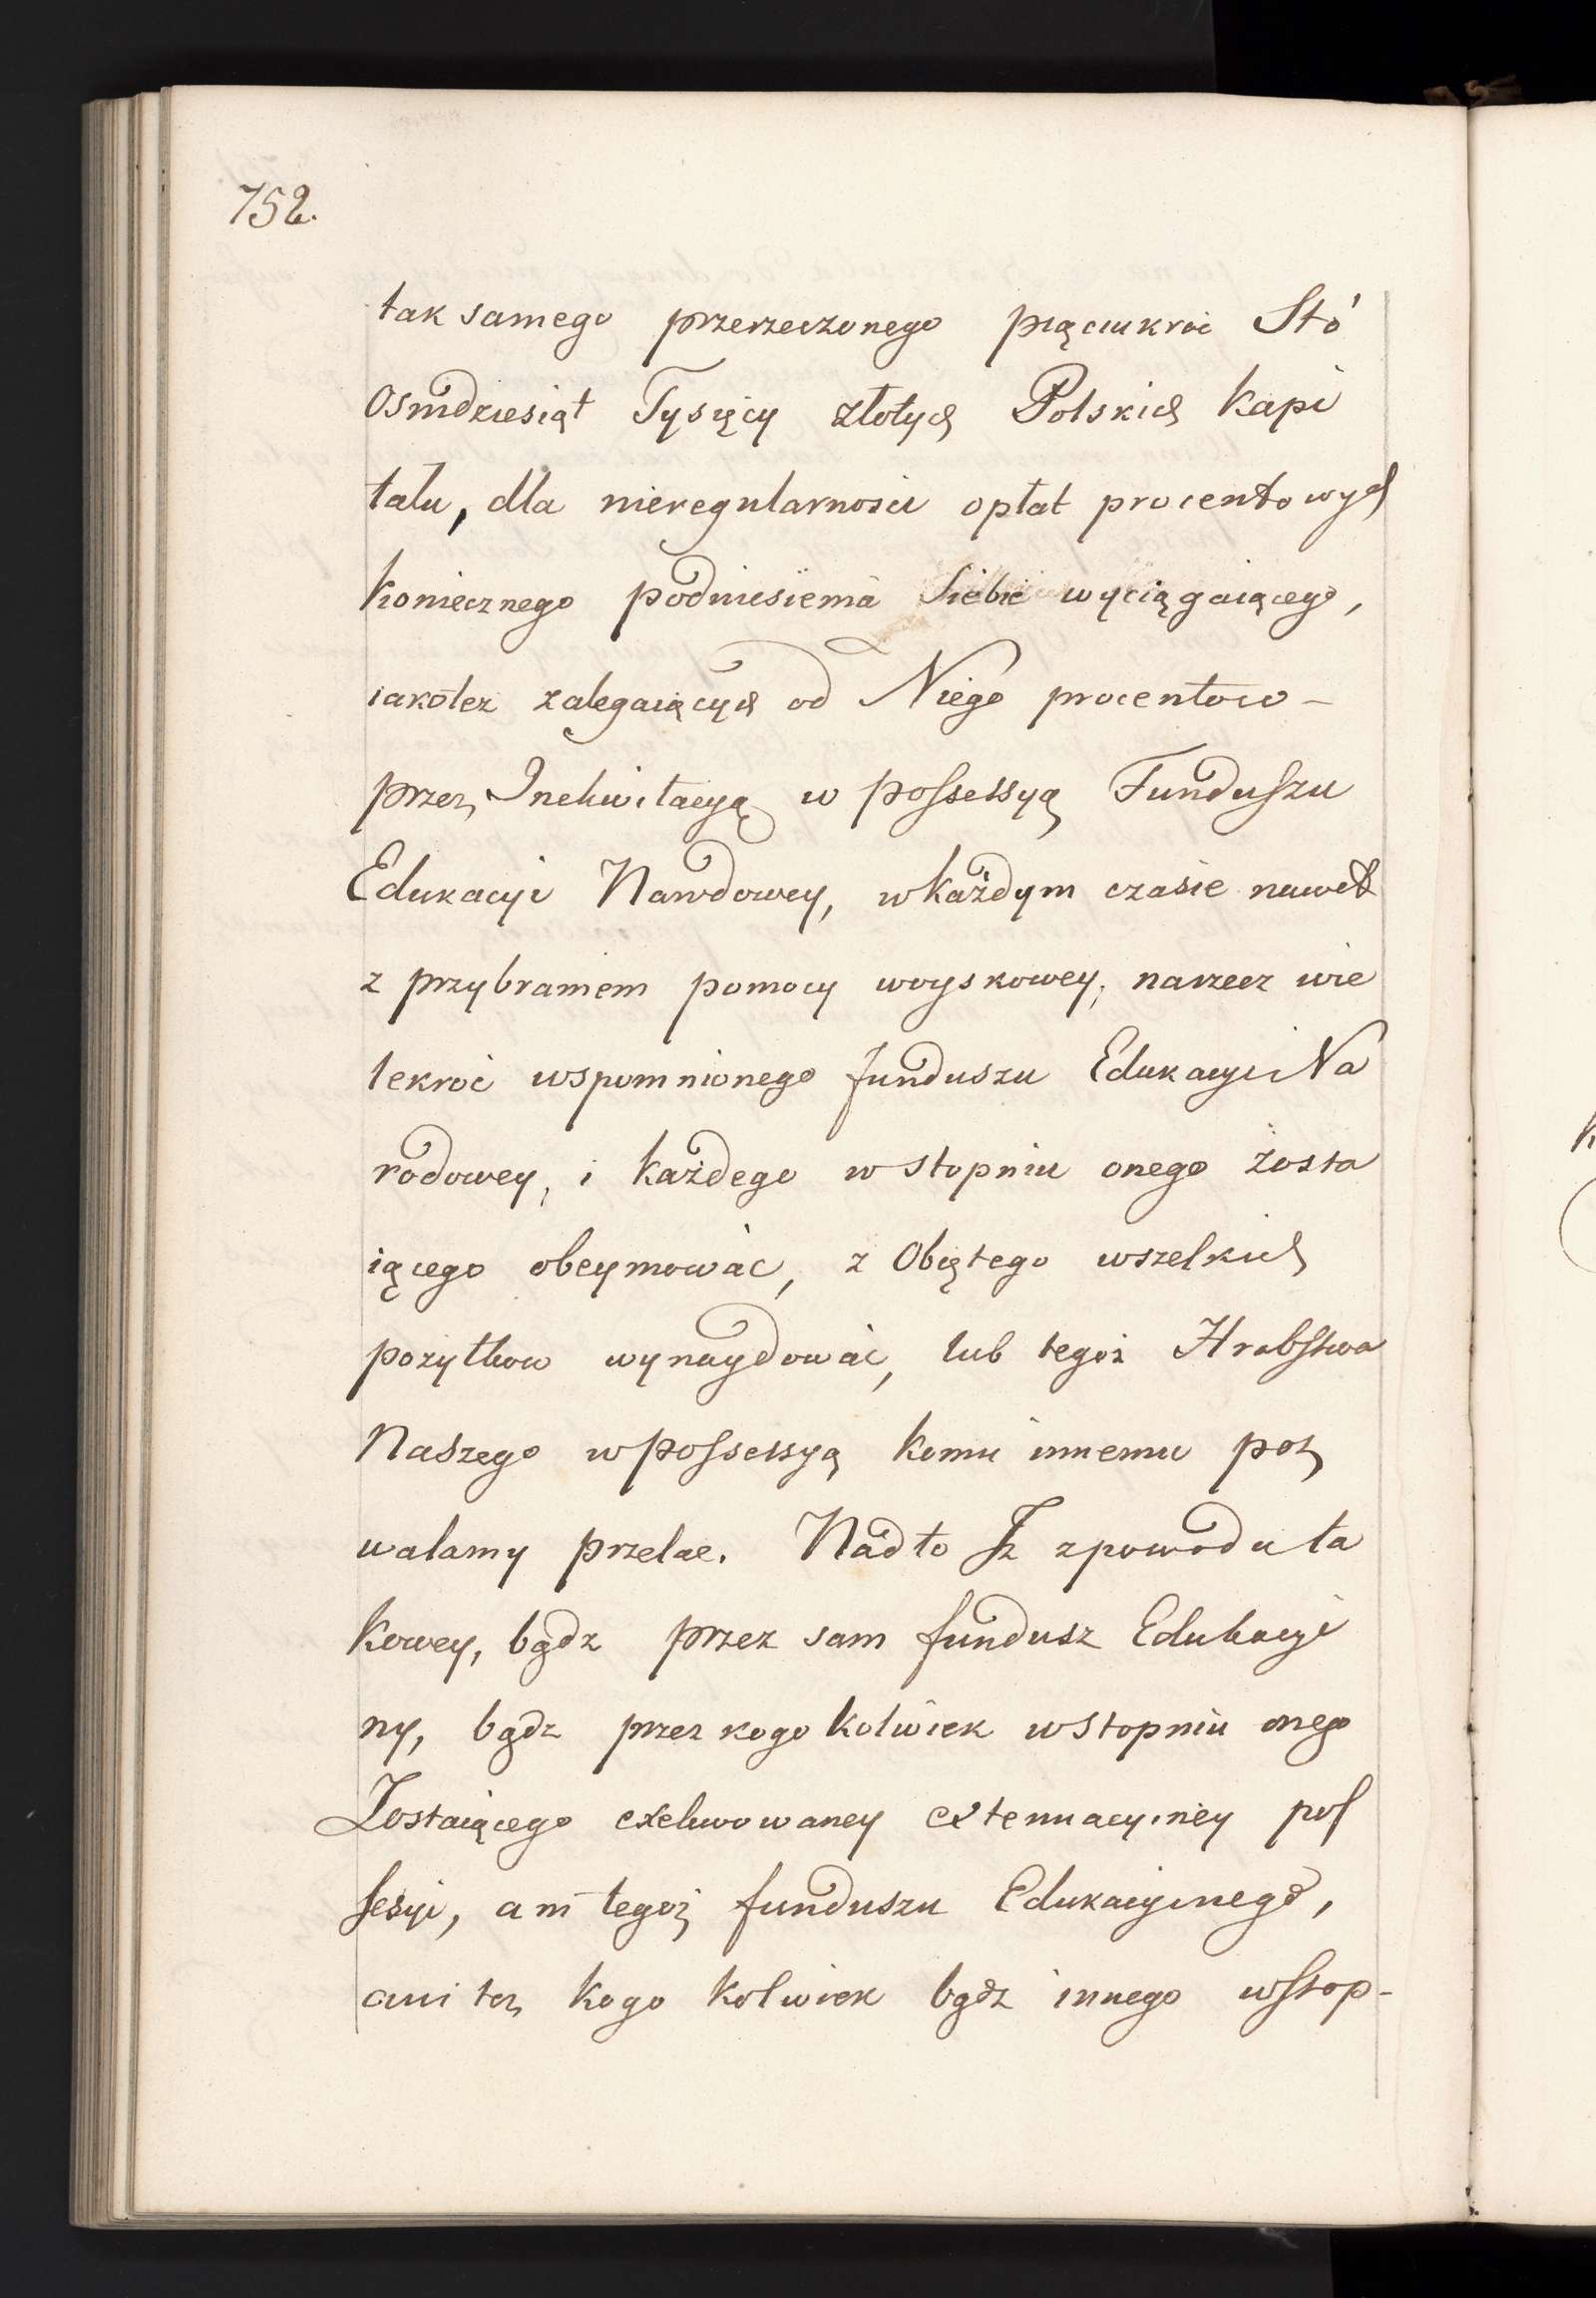 752.
tak samego przerzeczonego pięciukroć Stó
Osmdziesiąt Tysięcy złotych Polskich Kapi
tału, dla nieregularnosci opłat procentowych
koniecznego podniesienia siebie wyciągaiącego,
iakotez zalegaiących od Niego procentow –
przez Inekwitacyą w possessyą Funduszu
Edukacyi Narodowey, w każdym czasie nawet
z przybraniem pomocy woyskowey, narzecz wie
lekroć wspomnionego funduszu Edukacyi Na
rodowey, i każdego w stopniu onego zosta
iącego obeymować, z Obiętego wszelkich
pozytkow wynaydować, lub tegoż Hrabstwa
Naszego w possessyą komu innemu poz
walamy przelac. Nadto Iż zpowodu ta
kowey, bądz przez sam fundusz Edukacyi
ny, bądz przez kogo kolwiek w stopniu onego
Zostaiącego exekwowaney extenuacyiney pos
sesyi, ani tegoż funduszu Edukacyinego,
ani tez kogo kolwiek bądz innego w stop-